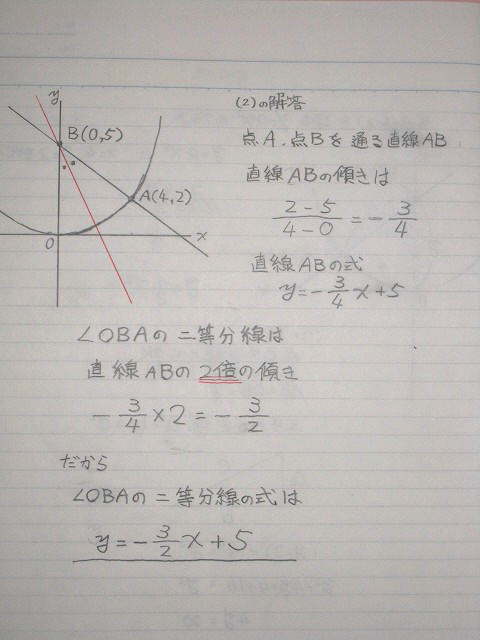 y
B(0,5)
A(4,2)
O
x
(2)の解答
点A、点Bを通る直線AB
直線ABの傾きは
2-5/4-0 = -3/4
直線ABの式
y=-3/4x+5
∠OBAの二等分線は
直線ABの2倍の傾き
-3/4×2=-3/2
だから
∠OBAの二等分線の式は
y=-3/2x+5